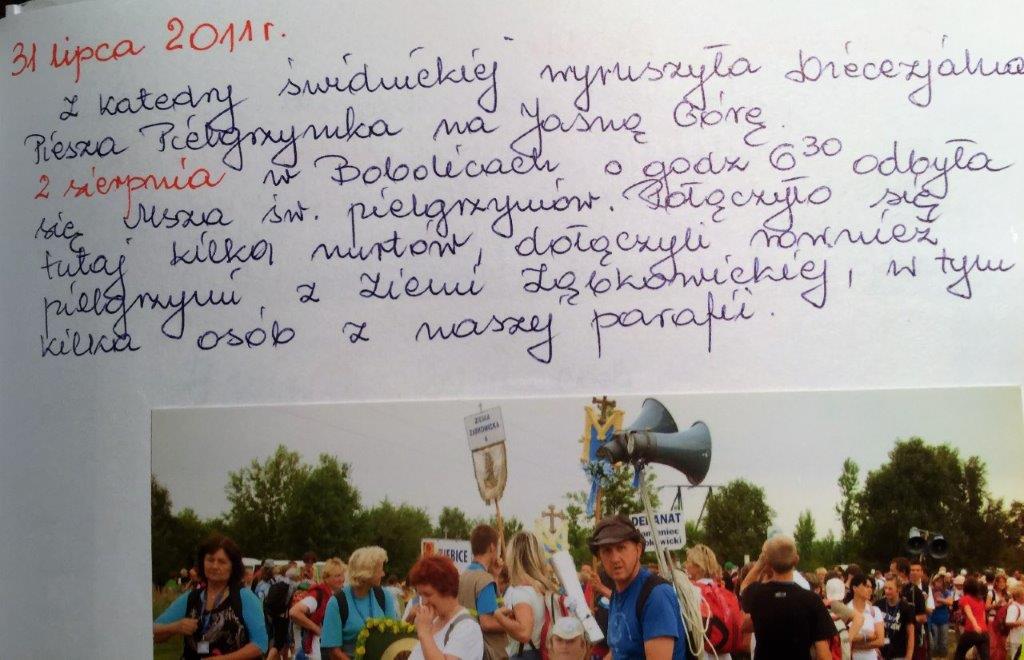 31 lipca 2011 r.
Z katedry świdnickiej wyruszyła Diecezjalna
Piesza Pielgrzymka na Jasną Górę.
2 sierpnia w Bobolicach o godz 6³⁰ odbyła
się Msza św. pielgrzymów. Dołączyło się
tutaj kilka nurtów, dołączyli również
pielgrzymi z Ziemi Ząbkowickiej, w tym
kilka osób z naszej parafii.
ZIEMIA
ZĄBKOWICKA
4
M
DEKANAT
ZIĘBICE